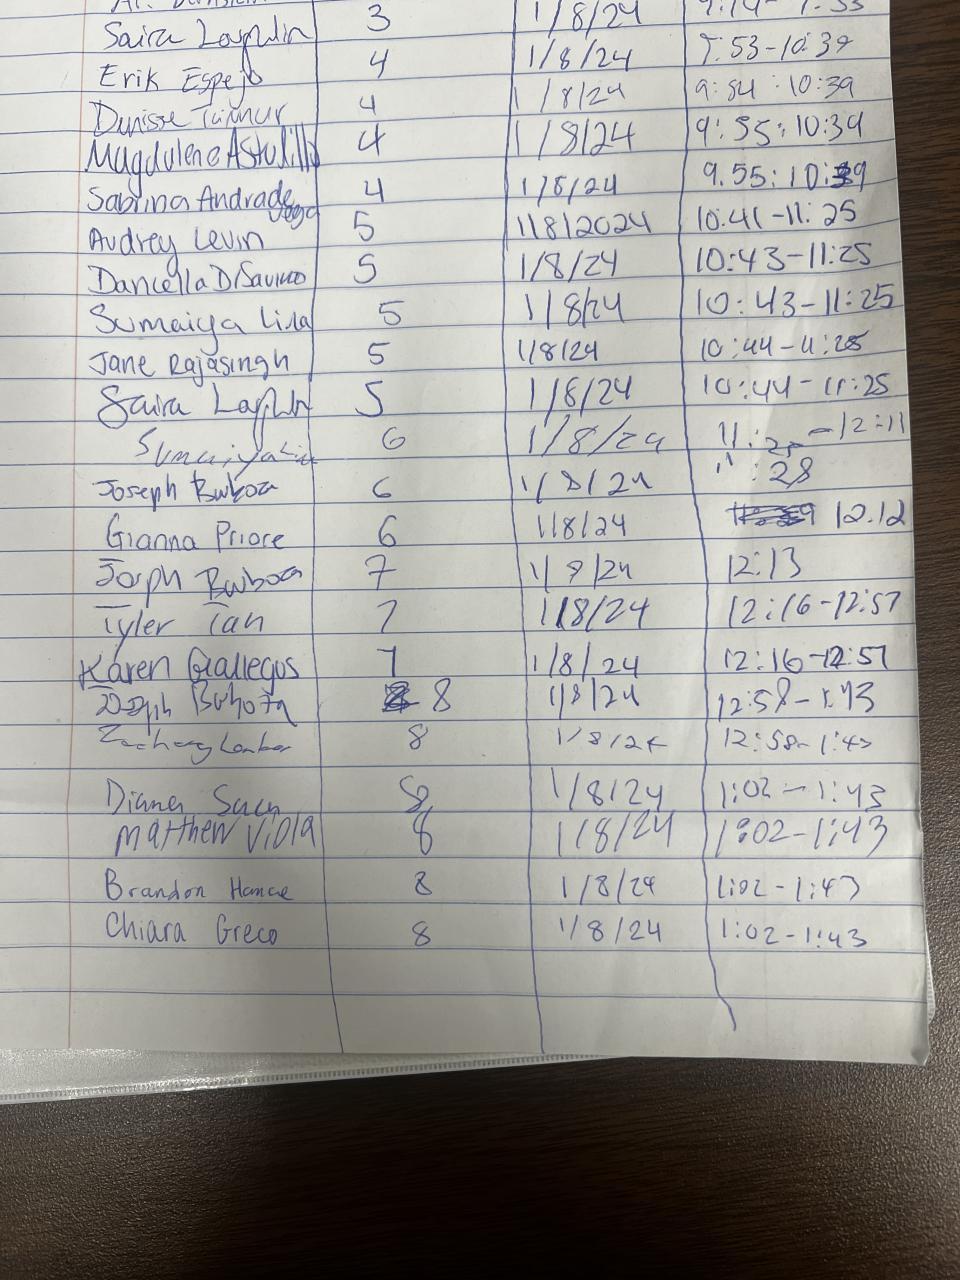 Saira Laghlin 3 1/8/24
Erik Espejo 4 1/8/24 9:53-10:39
Denisse 4 1/8/24 9:54 : 10:39
Magdalene Astudillo 4 1/8/24 9:55:10:39
Sabrina Andrade 4 1/8/24 9.55:10:39
Audrey Levin 5 1/8/2024 10:41-11:25
Daniella DiSavino 5 1/8/24 10:43-11:25
Sumaiya Lira 5 1/8/24 10:43-11:25
Jane Rajasingh 5 1/8/24 10:44-11:25
Saira 5 1/8/24 10:44-11:25
Sumaiya 6 1/8/24 -12:11
Joseph Barboza 6 1/8/24 11:28
Gianna Priore 6 1/8/24 12.12
Joseph Barboza 7 1/8/24 12:13
Tyler Tan 7 1/8/24 12:16-12:57
Karen Gallegos 7 1/8/24 12:16-12:57
Joseph 8 1/8/24 12:58-1:43
Zachary 8 1/8/24 12:58-1:43
Diana 8 1/8/24 1:02-1:43
Matthew Viola 8 1/8/24 1:02-1:43
Brandon 8 1/8/24 1:02-1:43
Chiara Greco 8 1/8/24 1:02-1:43